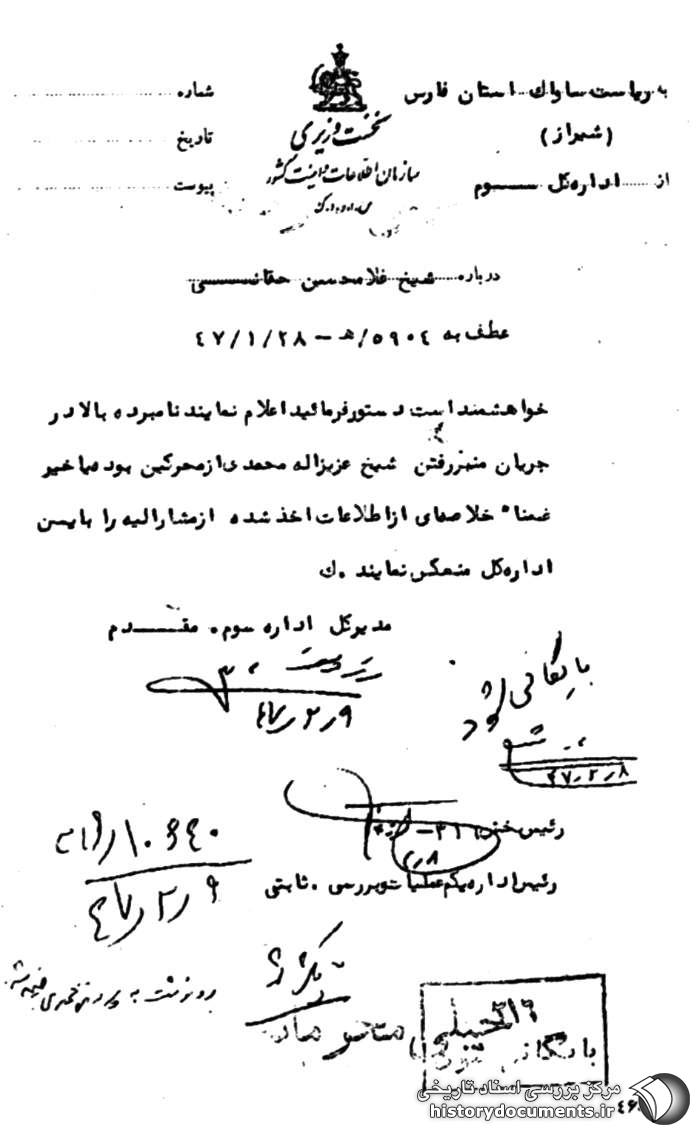 به ریاست ساواک استان فارس
(شیراز)
از اداره‌کل سوم
نخست وزیری
سازمان اطلاعات و امنیت کشور
س.ا.و.ا.ک
شماره
تاریخ
پیوست
درباره شیخ غلامحسن حقانی
عطف به ۵۹۰۴/ه‍ – ۴۷/۱/۲۸
خواهشمند است دستور فرمائید اعلام نمایند نامبرده بالا در
جریان منبر رفتن شیخ عزیزاله محمدی از محرکین بوده یا خیر
ضمنا" خلاصه‌ای از اطلاعات اخذ شده از مشارالیه را باین
اداره‌کل منعکس نمایند .ک
مدیرکل اداره سوم. مقدم
۴۷/۲/۹
بایگانی شود
۴۷/۲/۸
رئیس بخش ۳۱۶
۲/۸
رئیس اداره یکم عملیات و بررسی . ثابتی
۱۰۶۴۰
۴۷/۲/۹
تکثیر شد
رونوشت به پرونده محمدی ضمیمه شد
۳۱۶
بایگانی
مرکز بررسی اسناد تاریخی
historydocuments.ir